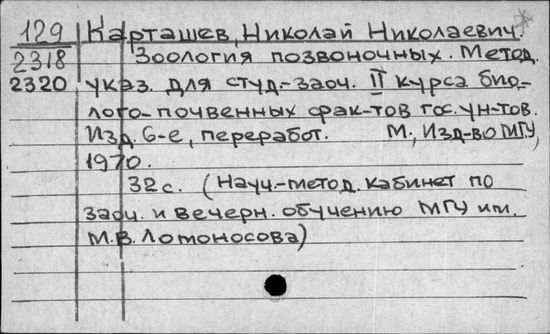 129 Карташев, Николай Николаевич.
2318 Зоология позвоночных. Метод.
2320 указ. для студ.-заоч. II курса био-
лого-почвенных фак-тов гос. ун-тов.
Изд. 6-е, переработ. М., Изд-во МГУ,
1970.
32 с. (Науч.-метод. кабинет по
заоч. и вечерн. обучению МГУ им.
М.В. Ломоносова)